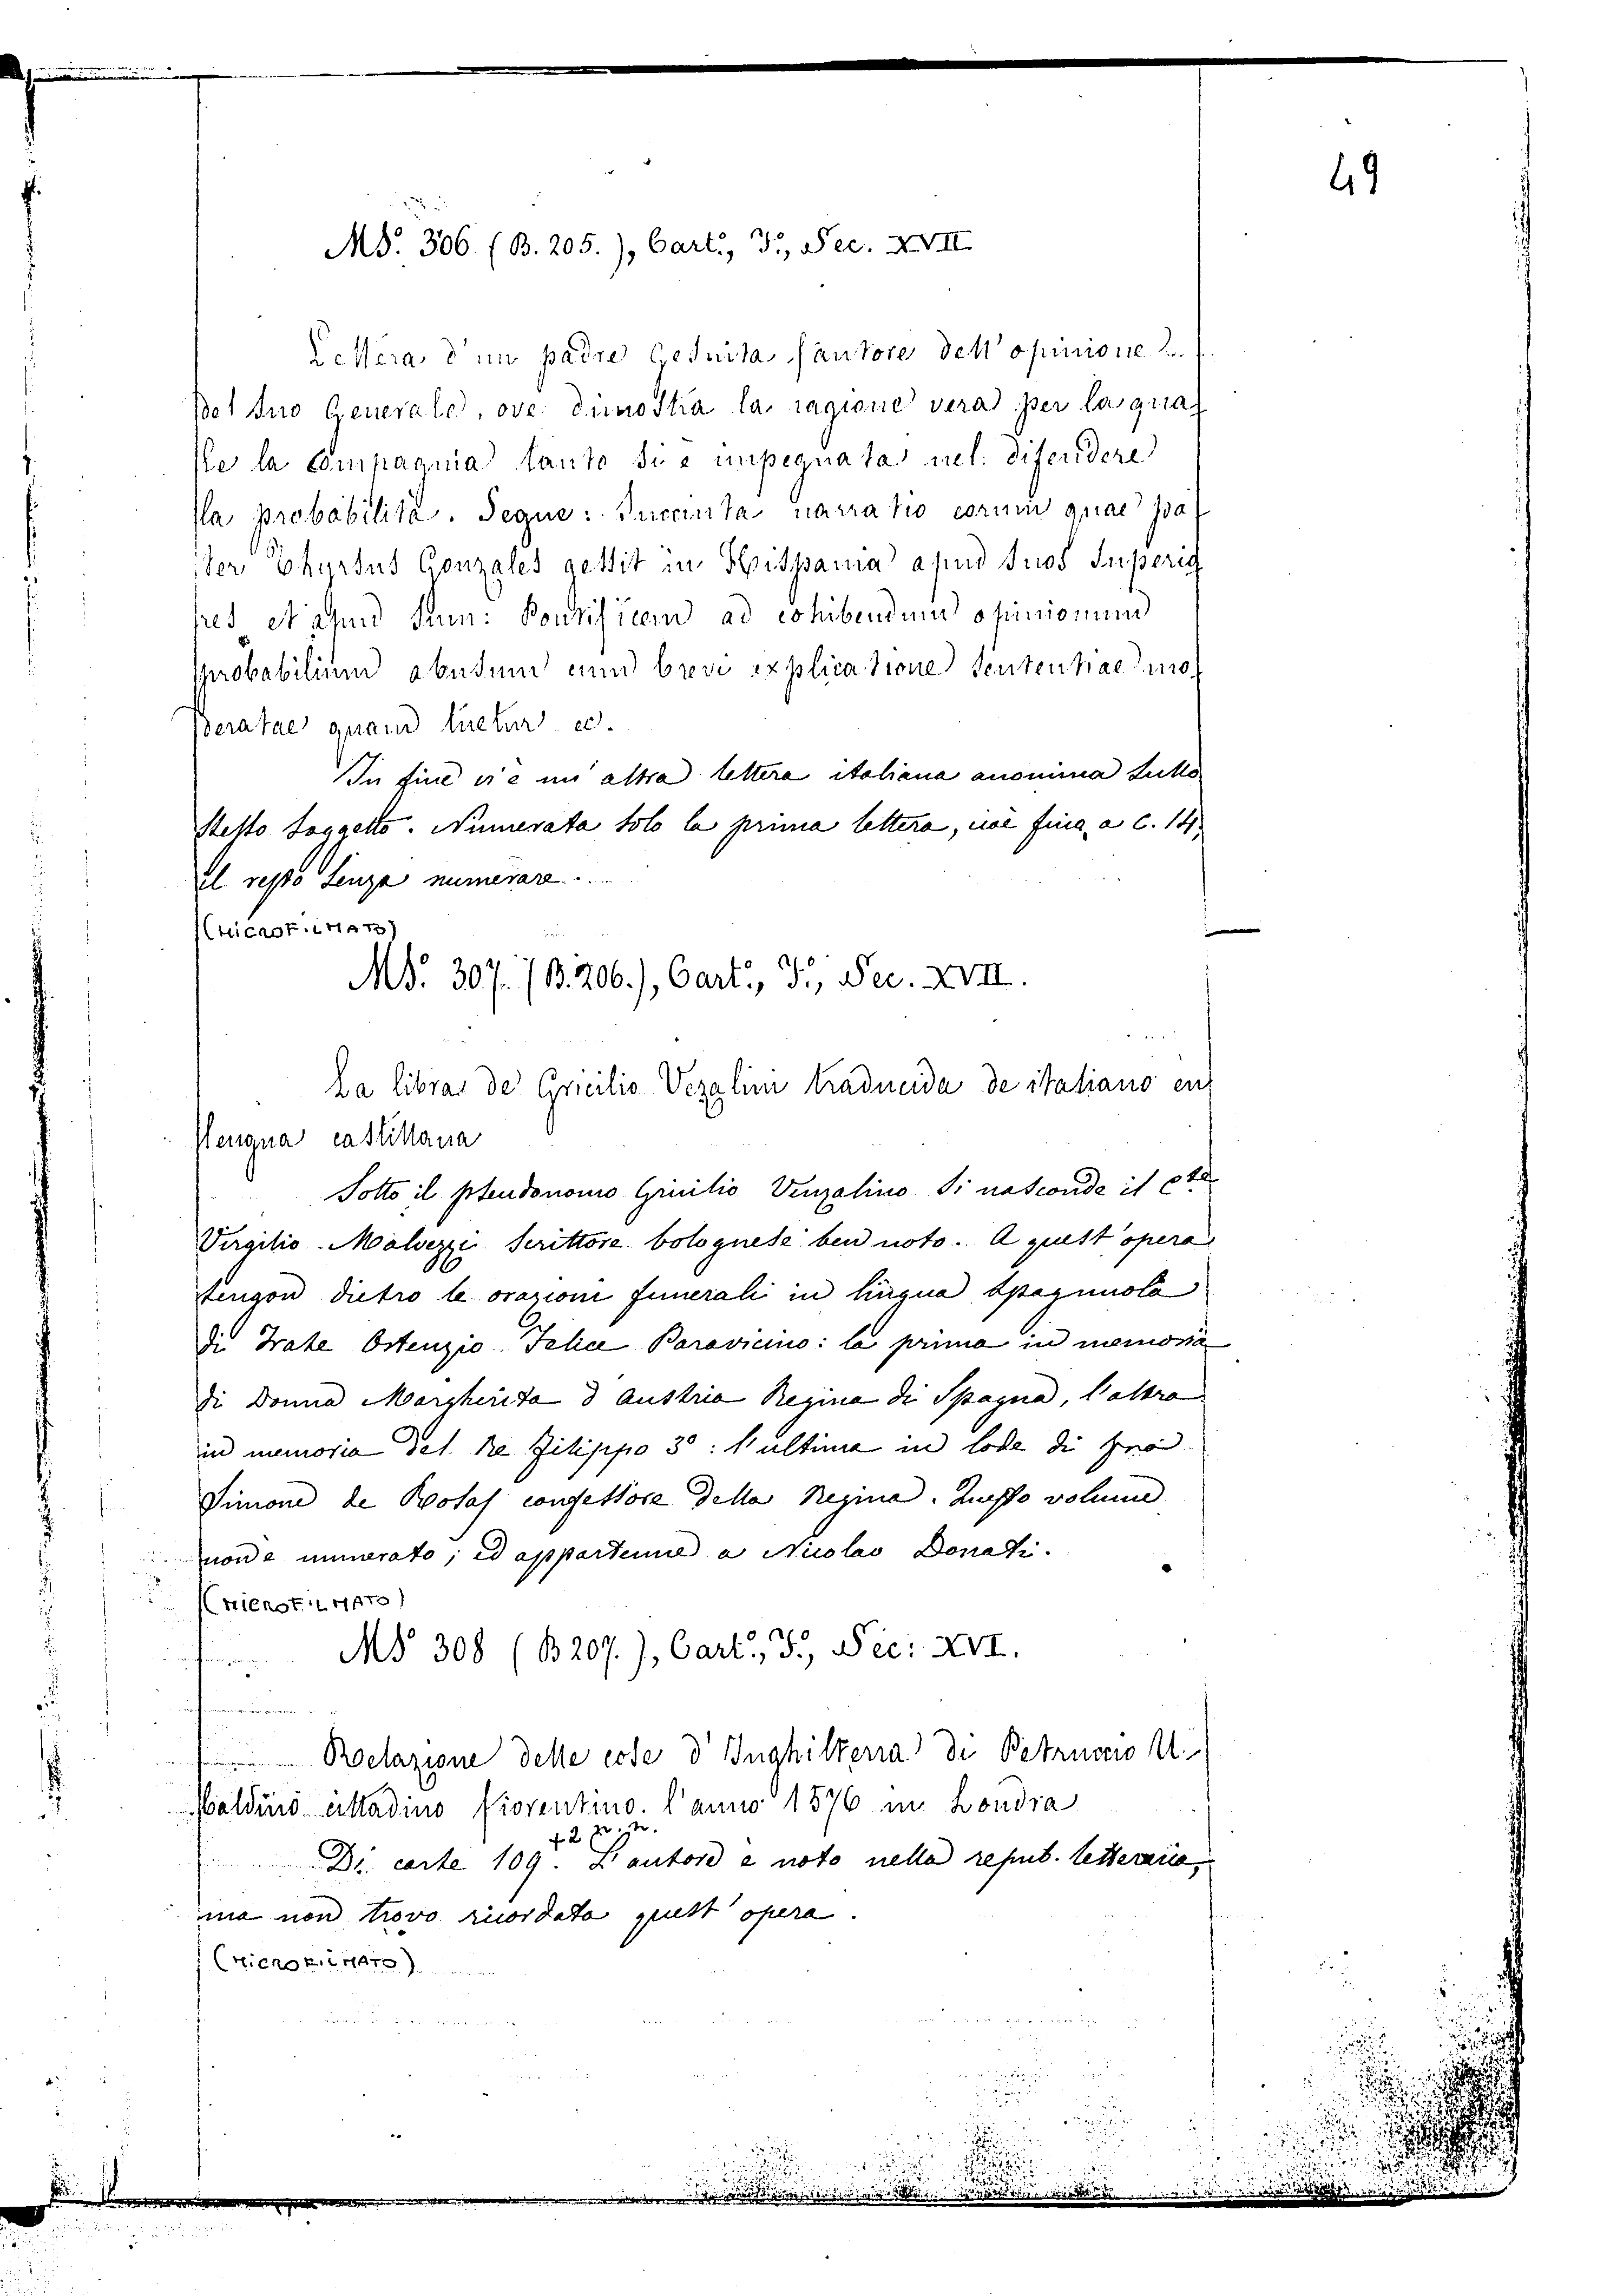 49
MS. 306. (B. 205.), Cart.º, 3º, Sec. XVII
Lettera d'un padre Gesuita fautore dell'opinione
del suo Generale, ove dimostra la ragione vera per la qua
le la Compagnia tanto si è impegnata nel difendere
la probabilità. Segue: Succinta narratio eorum quae pa
ter Thyrsus Gonzales gessit in Hispania apud suos Superio
res et apud Sum: Pontificem ad cohibendum opinionum
probabilium abusum cum brevi explicatione sententiae mo
deratae quam tuetur ec.
In fine vi è un'altra lettera italiana anonima sullo
stesso soggetto. Numerata solo la prima lettera, cioè fino a c. 14,
il resto senza numerare.
(MICROFILMATO)
MS. 307. (B. 206.), Cart.º, 3º, Sec. XVII.
La libra de Gricilio Vezalini traducida de italiano en
lengua castillana
Sotto il pseudonomo Gricilio Venzalino si nasconde il cte
Virgilio Malvezzi scrittore bolognese ben noto. A quest'opera
tengon dietro le orazioni funerali in lingua spagnuola
di Frate Ortenzio Felice Paravicino: la prima in memoria
di Donna Margherita d'Austria Regina di Spagna, l'altra
in memoria del Re Filippo 3º: l'ultima in lode di frà
Simone de Rosas confessore della Regina. Questo volume
non è numerato; ed appartenne a Nicolao Donati.
(MICROFILMATO)
MS 308 (B 207.), Cart.º, 3º, Sec: XVI.
Relazione delle cose d'Inghilterra di Petruccio U
baldino cittadino fiorentino. l'anno 1576 in Londra
+ 2 n. n.
Di carte 109. L'autore è noto nella repub. letteraria,
ma non trovo ricordata quest'opera.
(MICROFILMATO)